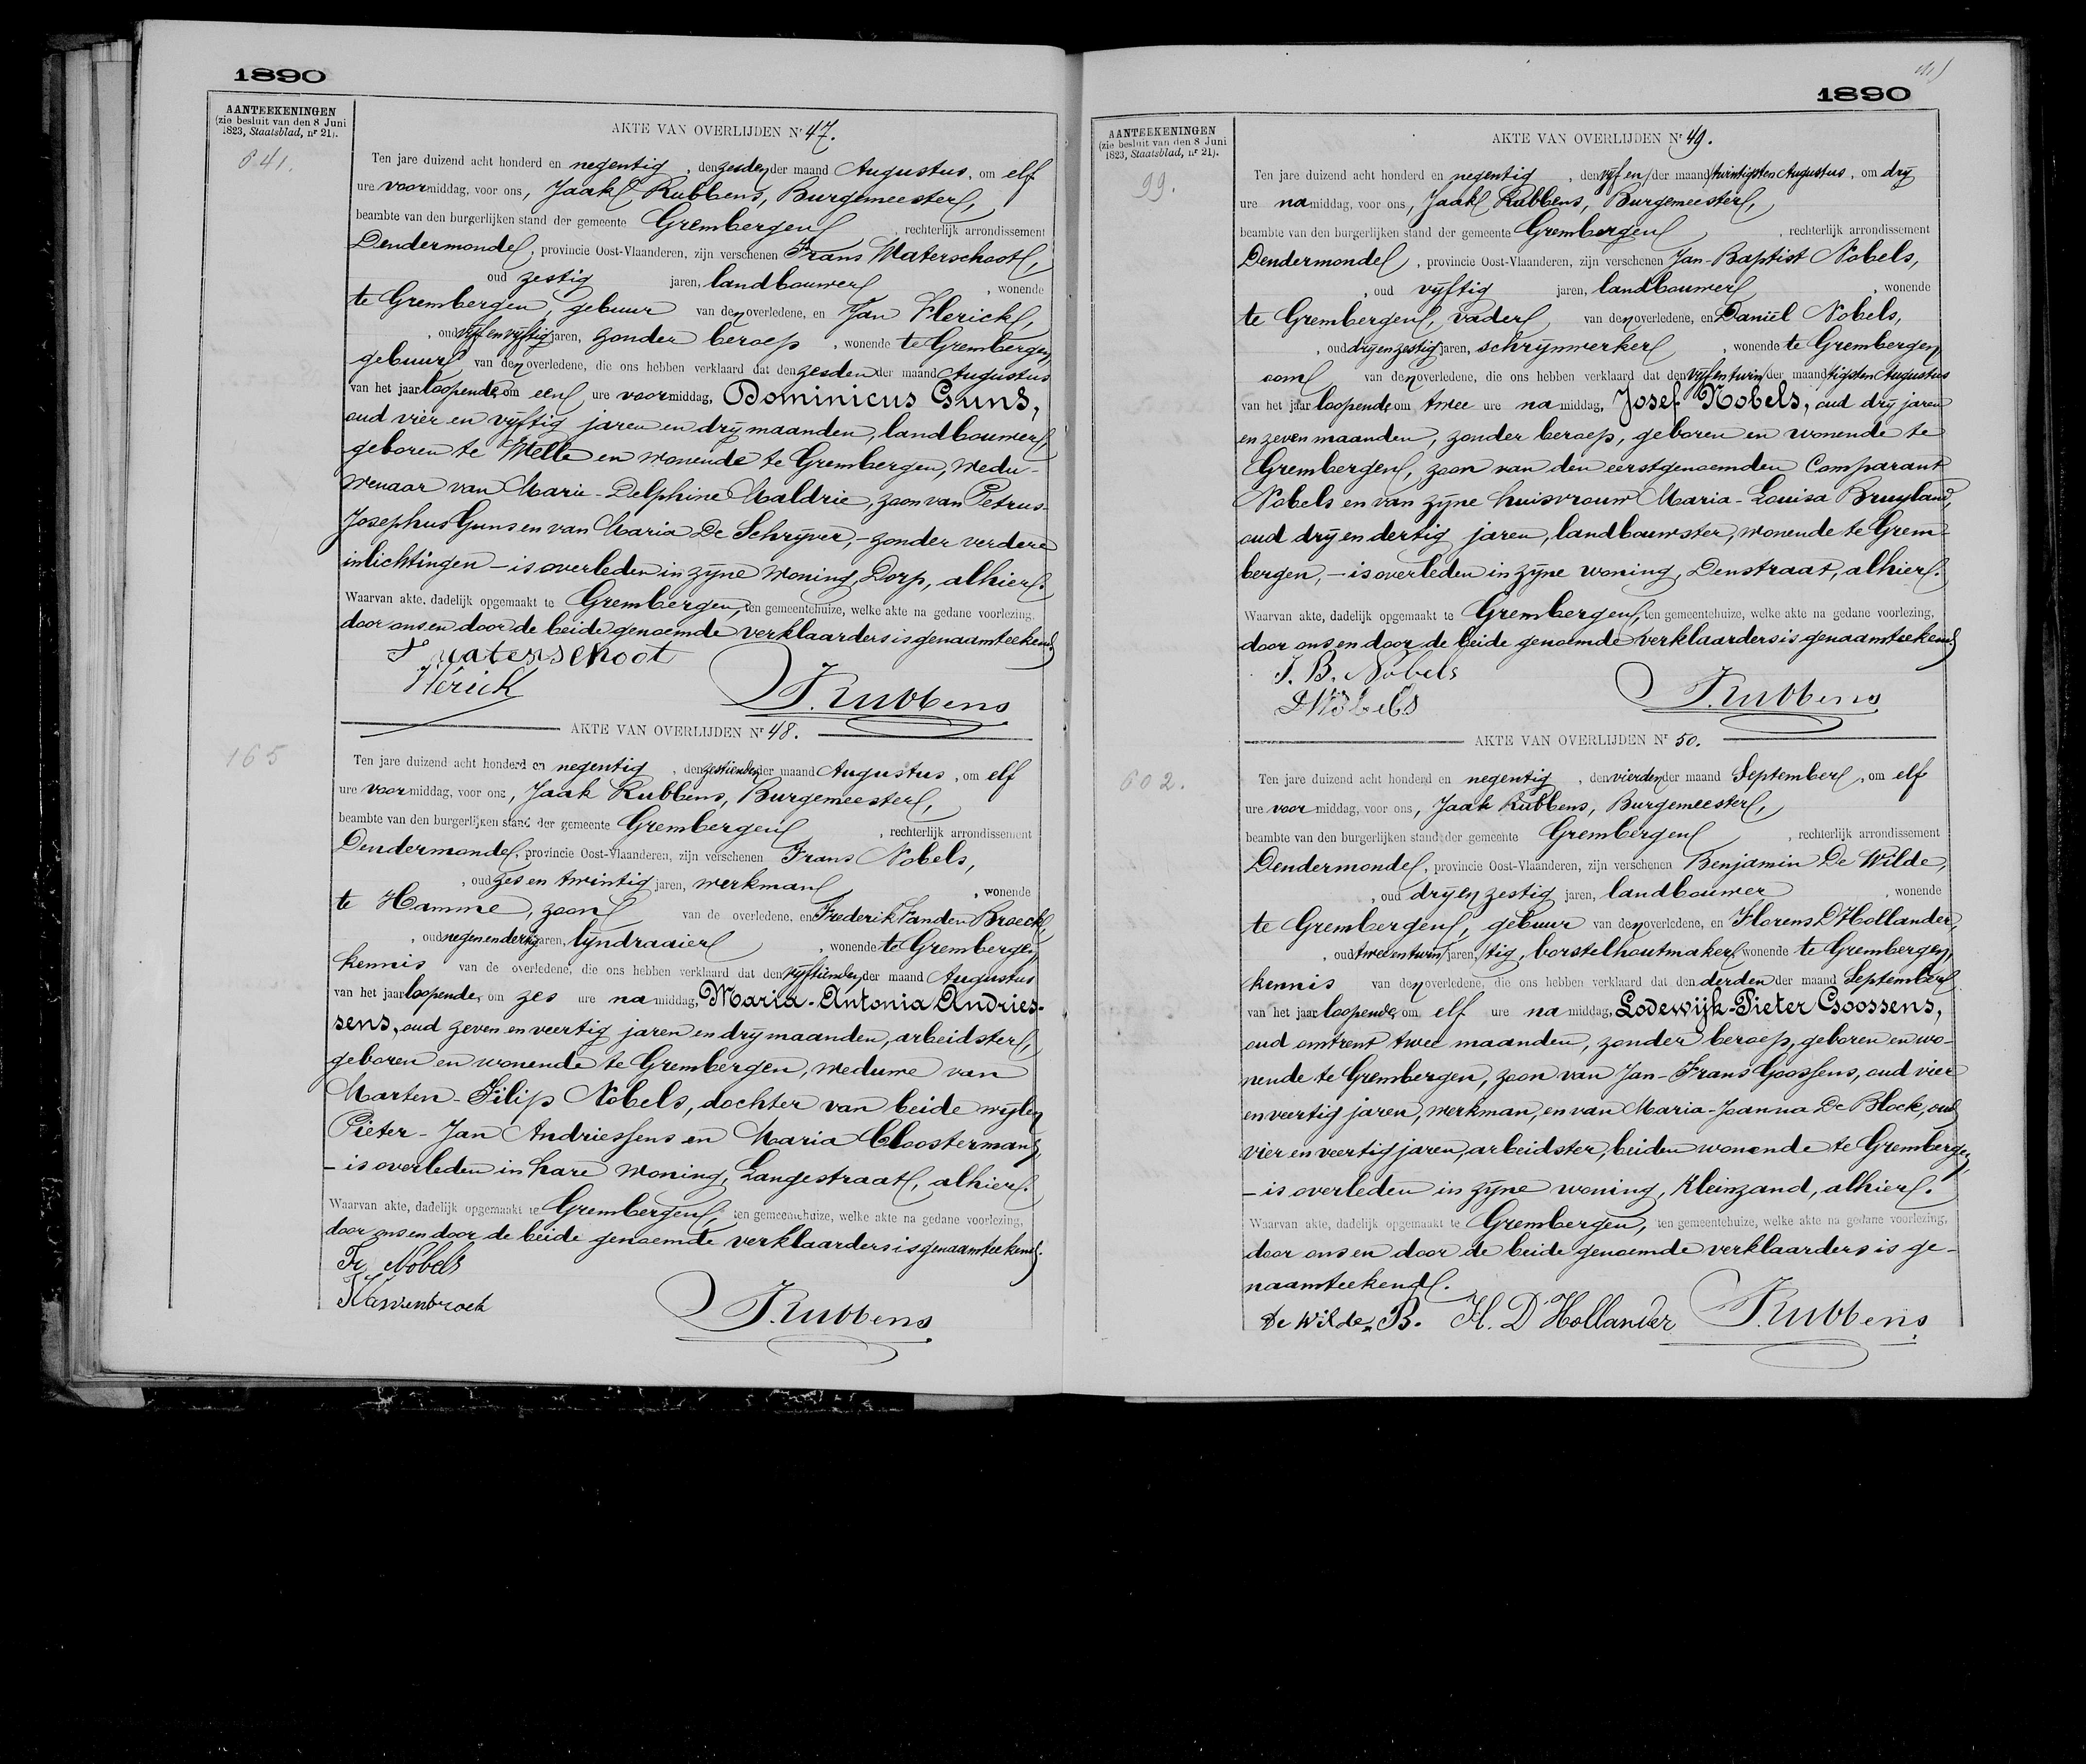 1890
AANTEEKENINGEN
(zie besluit van den 8 Juni
1823, Staatsblad, nr 21).
841.
AKTE VAN OVERLIJDEN Nr 47.
Ten jare duizend acht honderd en negentig, den zesden der maand Augustus, om elf
ure voormiddag, voor ons, Jaak Rubbens, Burgemeester,
beambte van den burgerlijken stand der gemeente Grembergen, rechterlijk arrondissement
Dendermonde, provincie Oost-Vlaanderen, zijn verschenen Frans Waterschoot,
oud zestig jaren, landbouwer, wonende
te Grembergen, gebuur van den overledene, en Jan Flerick,
, oud vijf en vijftig jaren, zonder beroep, wonende te Grembergen,
gebuur van den overledene, die ons hebben verklaard dat den zesden der maand Augustus
van het jaar loopende, om een ure voormiddag, Dominicus Guns,
oud vier en vijftig jaren en drij maanden, landbouwer,
geboren te Melle en wonende te Grembergen, wedu-
wenaar van Marie-Delphine Maldrie, zoon van Petrus-
Josephus Guns en van Maria De Schrijver, - zonder verdere
inlichtingen - is overleden in zijne woning, Dorp, alhier.
Waarvan akte, dadelijk opgemaakt te Grembergen, ten gemeentehuize, welke akte na gedane voorlezing,
door ons en door de beide genoemde verklaarders is genaamteekend
F waterschoot
Flerick
J. Rubbens
165
AKTE VAN OVERLIJDEN Nr 48.
Ten jare duizend acht honderd en negentig, den zestienden der maand Augustus, om elf
ure voormiddag, voor ons, Jaak Rubbens, Burgemeester,
beambte van den burgerlijken stand der gemeente Grembergen, rechterlijk arrondissement
Dendermonde, provincie Oost-Vlaanderen, zijn verschenen Frans Nobels,
, oud zes en twintig jaren, werkman, wonende
te Hamme, zoon van de overledene, en Frederik Vanden Broeck,
, oud negen en dertig jaren, lijndraaier, wonende te Grembergen,
kennis van de overledene, die ons hebben verklaard dat den vijftienden der maand Augustus
van het jaar loopende, om zes ure namiddag, Maria-Antonia Andries-
sens, oud zeven en veertig jaren en drij maanden, arbeidster,
geboren en wonende te Grembergen, weduwe van
Marten-Filip Nobels, dochter van beide wijlen
Pieter-Jan Andriessens en Maria Cloosterman,
- is overleden in hare woning, Langestraat, alhier.
Waarvan akte, dadelijk opgemaakt te Grembergen, ten gemeentehuize, welke akte na gedane voorlezing,
door ons en door de beide genoemde verklaarders is genaamteekend.
Fr Nobels
J. Rubbens
1890
AANTEEKENINGEN
(zie besluit van den 8 Juni
1823, Staatsblad, nr 21).
99.
AKTE VAN OVERLIJDEN Nr 49.
Ten jare duizend acht honderd en negentig, den vijf en/der maand/twintigsten Augustus, om drij
ure namiddag, voor ons, Jaak Rubbens, Burgemeester,
beambte van den burgerlijken stand der gemeente Grembergen, rechterlijk arrondissement
Dendermonde, provincie Oost-Vlaanderen, zijn verschenen Jan-Baptist Nobels,
, oud vijftig jaren, landbouwer, wonende
te Grembergen, vader van den overledene, en Daniël Nobels,
, oud drij en zestig jaren, schrijnwerker, wonende te Grembergen,
oom van den overledene, die ons hebben verklaard dat den vijf en twin/der maand/tigsten Augustus
van het jaar loopende om twee ure namiddag, Josef Nobels, oud drij jaren
en zeven maanden, zonder beroep, geboren en wonende te
Grembergen, zoon van den eerstgenoemden Comparant
Nobels en van zijne huisvrouw Maria-Louisa Bruyland,
oud drij en dertig jaren, landbouwster, wonende te Grem-
bergen, - is overleden in zijne woning, Denstraat, alhier.
Waarvan akte, dadelijk opgemaakt te Grembergen, ten gemeentehuize, welke akte na gedane voorlezing,
door ons en door de beide genoemde verklaarders is genaamteekend
J. B. Nobels
D Nobels
J. Rubbens
602.
AKTE VAN OVERLIJDEN Nr 50.
Ten jare duizend acht honderd en negentig, den vierden der maand September, om elf
ure voormiddag, voor ons, Jaak Rubbens, Burgemeester,
beambte van den burgerlijken stand der gemeente Grembergen, rechterlijk arrondissement
Dendermonde, provincie Oost-Vlaanderen, zijn verschenen Benjamin De Wilde,
, oud drij en zestig jaren, landbouwer, wonende
te Grembergen, gebuur van den overledene, en Florens D'Hollander,
, oud twee en twin/jaren,/tig, borstelhoutmaker, wonende te Grembergen,
kennis van den overledene, die ons hebben verklaard dat den derden der maand September
van het jaar loopende, om elf ure namiddag, Lodewijk-Pieter Goossens,
oud omtrent twee maanden, zonder beroep, geboren en wo-
nende te Grembergen, zoon van Jan-Frans Goossens, oud vier
en veertig jaren, werkman, en van Maria-Joanna De Block, oud
vier en veertig jaren, arbeidster, beiden wonende te Grembergen,
- is overleden in zijne woning, Kleinzand, alhier.
Waarvan akte, dadelijk opgemaakt te Grembergen, ten gemeentehuize, welke akte na gedane voorlezing,
door ons en door de beide genoemde verklaarders is ge-
naamteekend.
De Wilde B. H. D'Hollander J. Rubbens